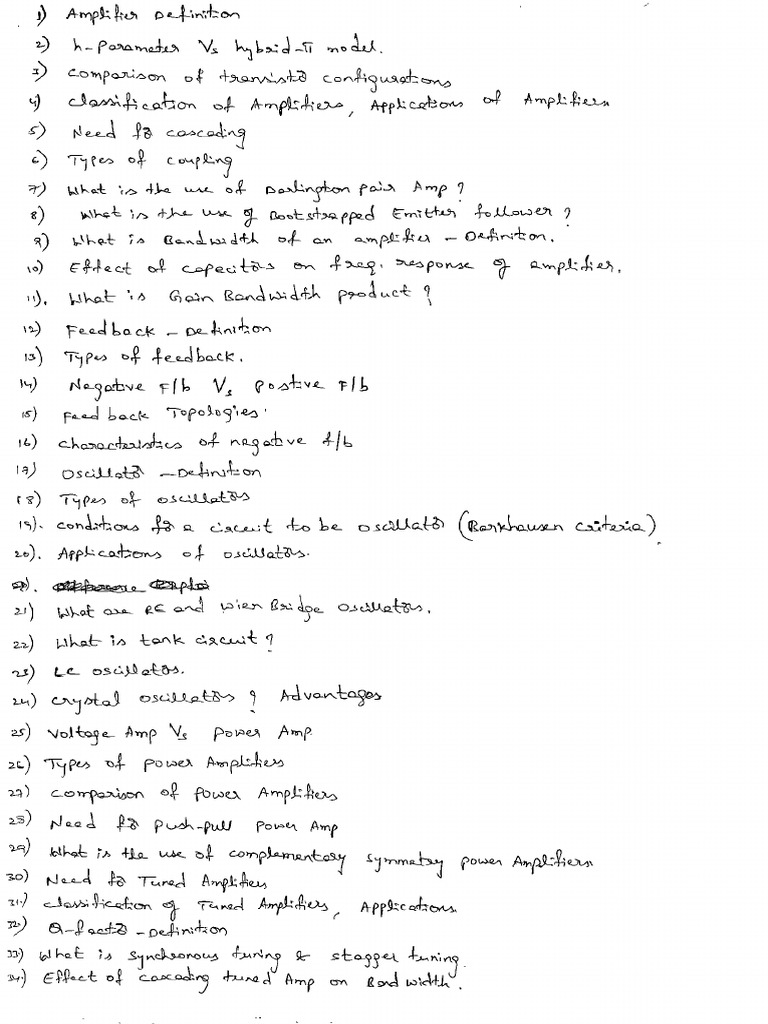 1) Amplifier Definition
2) h-Parameter Vs hybrid-π model.
3) Comparison of transistor configurations
4) Classification of Amplifiers, Applications of Amplifiers
5) Need for cascading
6) Types of coupling
7) What is the use of Darlington pair Amp?
8) What is the use of Bootstrapped Emitter follower?
9) What is Bandwidth of an amplifier - Definition.
10) Effect of capacitors on freq. response of amplifier.
11). What is Gain Bandwidth product?
12) Feedback - Definition
13) Types of feedback.
14) Negative F/b Vs Postive F/b
15) Feed back Topologies.
16) Characteristics of negative f/b
17) Oscillator - Definition
18) Types of oscillators
19). Conditions for a circuit to be oscillator (Barkhausen Criteria).
20). Applications of oscillators.
21) What are RC and Wien Bridge oscillators.
22) What is tank circuit?
23) LC oscillators.
24) Crystal oscillators? Advantages
25) Voltage Amp Vs Power Amp.
26) Types of Power Amplifiers
27) Comparison of Power Amplifiers
28) Need for push-pull Power Amp
29) What is the use of complementary symmetry power Amplifiers
30) Need for Tuned Amplifiers
31.) Classification of Tuned Amplifiers, Applications.
32.) Q-factor - Definition
33) What is synchronous tuning & stagger tuning.
34.) Effect of cascading tuned Amp on Bandwidth.